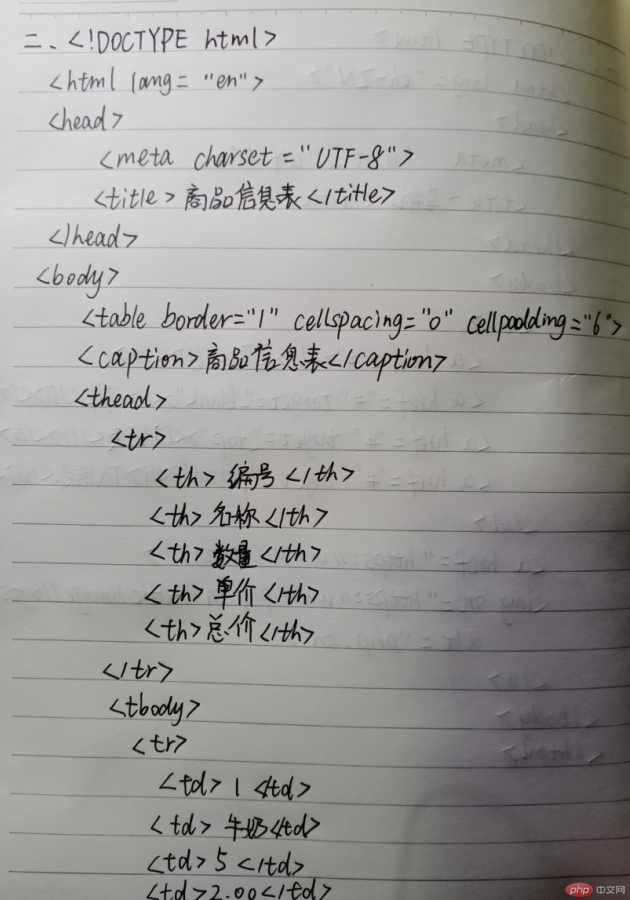 二、<!DOCTYPE html>
<html lang="en">
<head>
<meta charset="UTF-8">
<title>商品信息表</title>
</head>
<body>
<table border="1" cellspacing="0" cellpadding="6">
<caption>商品信息表</caption>
<thead>
<tr>
<th>编号</th>
<th>名称</th>
<th>数量</th>
<th>单价</th>
<th>总价</th>
</tr>
<tbody>
<tr>
<td>1</td>
<td>牛奶</td>
<td>5</td>
<td>2.00</td>
php 中文网